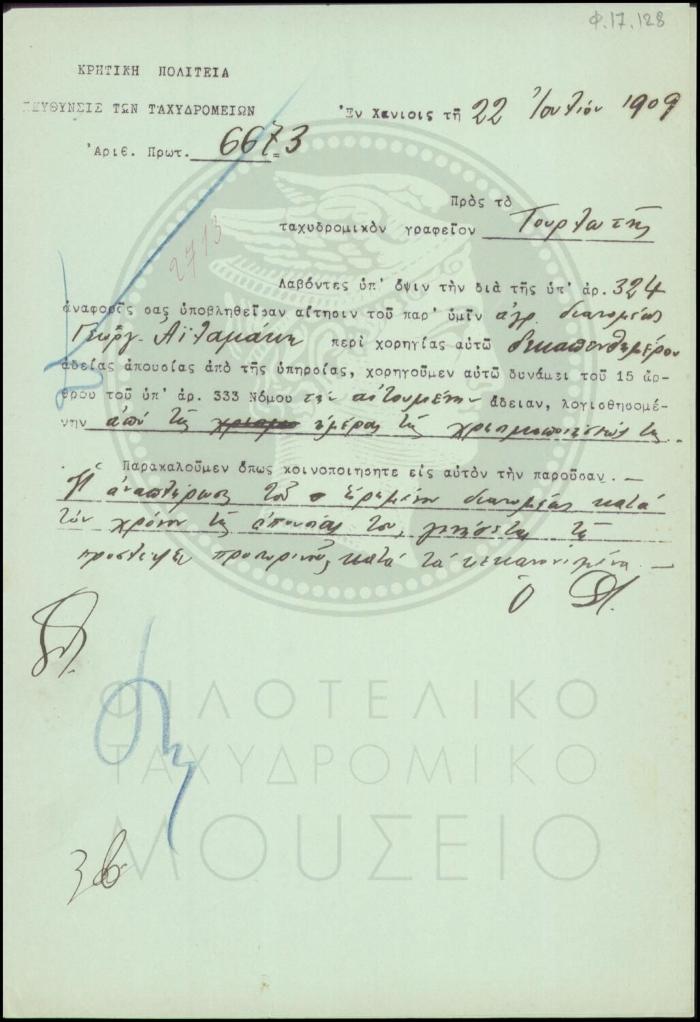 Φ.17.128
ΚΡΗΤΙΚΗ ΠΟΛΙΤΕΙΑ
ΙΕΥΘΥΝΣΙΣ ΤΩΝ ΤΑΧΥΔΡΟΜΕΙΩΝ
Ἐν Χανίοις τῇ 22 Ἰουλίου 1909
Ἀριθ. Πρωτ. 6673
Πρὸς τὸ
ταχυδρομικὸν γραφεῖον Τουρλωτῆς
2713
Λαβόντες ὑπ' ὄψιν τὴν διὰ τῆς ὑπ' ἀρ. 324
ἀναφορᾶς σας ὑποβληθεῖσαν αἴτησιν τοῦ παρ' ὑμῖν ἀγρ. διανομέως
Γεωργ. περὶ χορηγίας αὐτῷ δεκαπενθημέρου
ἀδείας ἀπουσίας ἀπὸ τῆς ὑπηρσίας, χορηγοῦμεν αὐτῷ δυνάμει τοῦ 15 ἄρ-
θρου τοῦ ὑπ' ἀρ. 333 Νόμου τὴν αἰτουμένην ἄδειαν, λογισθησομέ-
νην ἀπὸ τῆς ἡμέρας τῆς χρησιμοποιήσεώς της.
Παρακαλοῦμεν ὅπως κοινοποιήσητε εἰς αὐτὸν τὴν παροῦσαν.—
Ἡ ἀναπλήρωσις τοῦ διανομέως κατὰ
τὸν χρόνον τῆς ἀπουσίας του, γενήσεται τῇ
προσλήψει προσωρινοῦ, κατὰ τὰ κεκανονισμένα.—
Ὁ
ΦΙΛΟΤΕΛΙΚΟ
ΤΑΧΥΔΡΟΜΙΚΟ
ΜΟΥΣΕΙΟ